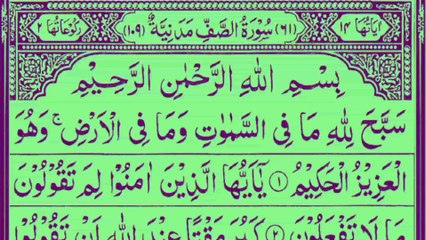 اٰیَاتُهَا ۱۴ (۶۱) سُوْرَةُ الصَّفِّ مَدَنِیَّةٌ (۱۰۹) رُكُوْعَاتُهَا ۲
بِسْمِ اللّٰهِ الرَّحْمٰنِ الرَّحِیْمِ
سَبَّحَ لِلّٰهِ مَا فِی السَّمٰوٰتِ وَمَا فِی الْاَرْضِ ۚ وَهُوَ
الْعَزِیْزُ الْحَكِیْمُ ۝۱ یٰۤاَیُّهَا الَّذِیْنَ اٰمَنُوْا لِمَ تَقُوْلُوْنَ
مَا لَا تَفْعَلُوْنَ ۝۲ كَبُرَ مَقْتًا عِنْدَ اللّٰهِ اَنْ تَقُوْلُوْا